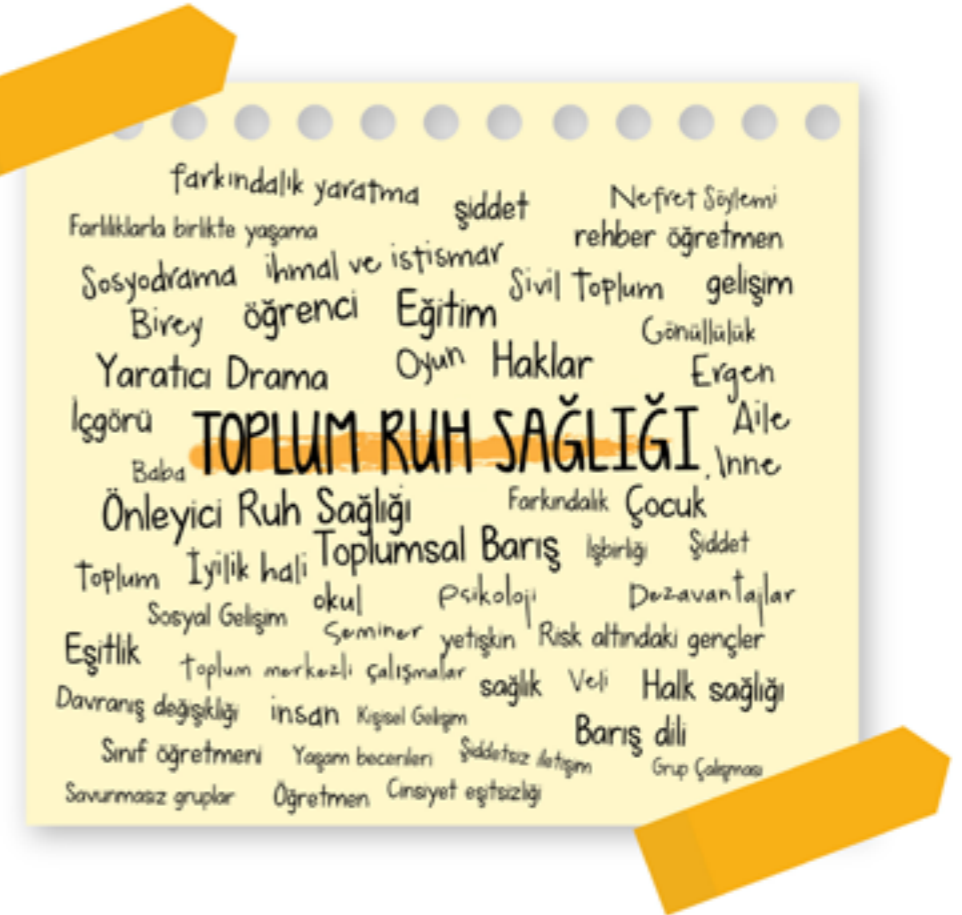 farkındalık yaratma
şiddet
Nefret Söylemi
Farlılıklarla birlikte yaşama
rehber öğretmen
Sosyodrama
ihmal ve istismar
Sivil Toplum
gelişim
Birey
öğrenci
Eğitim
Gönüllülük
Yaratıcı Drama
Oyun
Haklar
Ergen
İçgörü
TOPLUM RUH SAĞLIĞI
Aile
Baba
Önleyici Ruh Sağlığı
Farkındalık
Çocuk
Toplumsal Barış
İşbirliği
Şiddet
Toplum
İyilik hali
okul
Psikoloji
Dezavantajlar
Sosyal Gelişim
Seminer
yetişkin
Risk altındaki gençler
Eşitlik
Toplum merkezli çalışmalar
sağlık
Veli
Halk sağlığı
Davranış değişikliği
insan
Kişisel Gelişim
Barış dili
Sınıf öğretmeni
Yaşam becerileri
Şiddetsiz iletişim
Grup Çalışması
Savunmasız gruplar
Öğretmen
Cinsiyet eşitsizliği